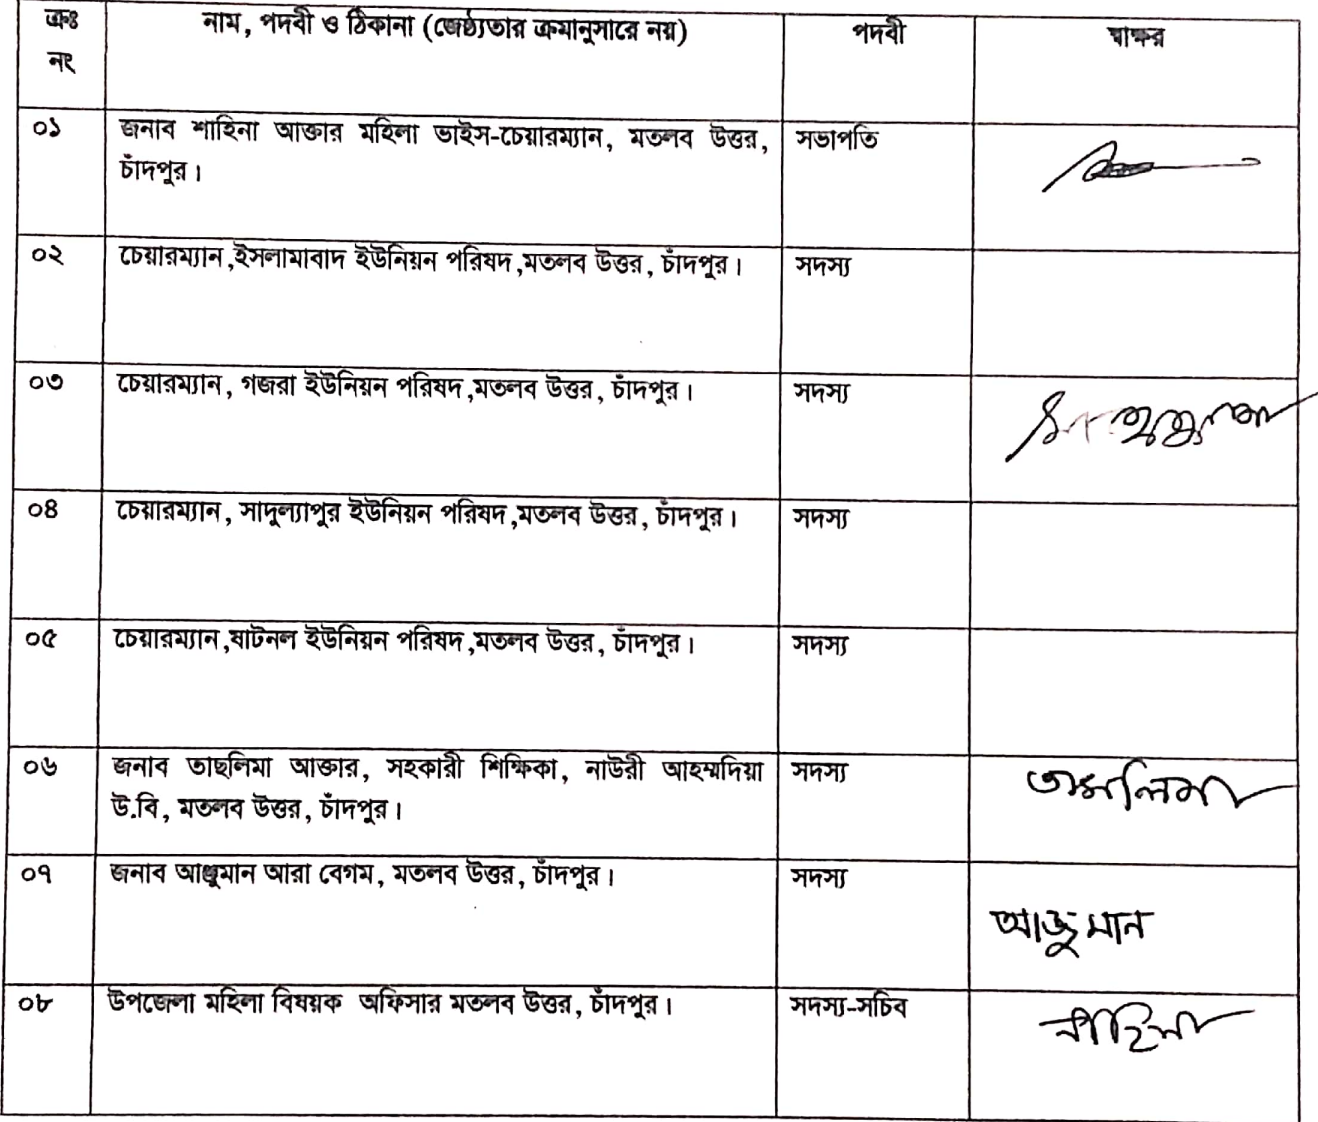 ক্রঃ নাম, পদবী ও ঠিকানা (জেষ্ঠ্যতার ক্রমানুসারে নয়) পদবী স্বাক্ষর
নং
০১ জনাব শাহিনা আক্তার মহিলা ভাইস-চেয়ারম্যান, মতলব উত্তর, সভাপতি
চাঁদপুর।
০২ চেয়ারম্যান,ইসলামাবাদ ইউনিয়ন পরিষদ,মতলব উত্তর, চাঁদপুর। সদস্য
০৩ চেয়ারম্যান, গজরা ইউনিয়ন পরিষদ,মতলব উত্তর, চাঁদপুর। সদস্য
০৪ চেয়ারম্যান, সাদুল্যাপুর ইউনিয়ন পরিষদ,মতলব উত্তর, চাঁদপুর। সদস্য
০৫ চেয়ারম্যান,ষাটনল ইউনিয়ন পরিষদ,মতলব উত্তর, চাঁদপুর। সদস্য
০৬ জনাব তাছলিমা আক্তার, সহকারী শিক্ষিকা, নাউরী আহম্মদিয়া সদস্য তাসলিমা
উ.বি, মতলব উত্তর, চাঁদপুর।
০৭ জনাব আঞ্জুমান আরা বেগম, মতলব উত্তর, চাঁদপুর। সদস্য
আঞ্জুমান
০৮ উপজেলা মহিলা বিষয়ক অফিসার মতলব উত্তর, চাঁদপুর। সদস্য-সচিব